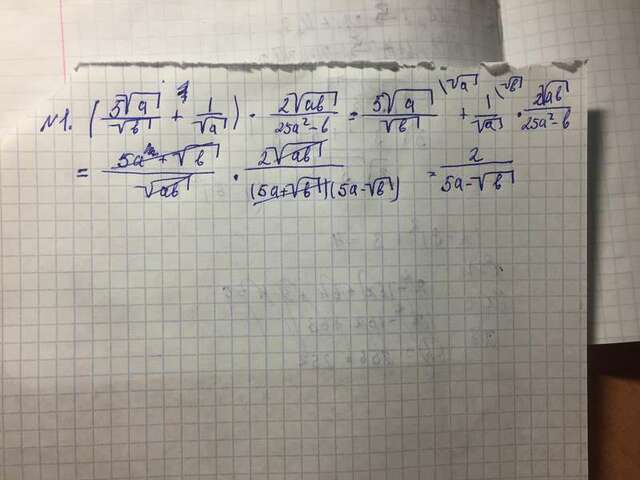 №1. (5√a/√b + 1/√a) · 2√ab/25a²-b = 5√a/√b \√a + 1/√a \√b · 2√ab/25a²-b
= 5a+√b/√ab · 2√ab/(5a+√b)(5a-√b) = 2/5a-√b